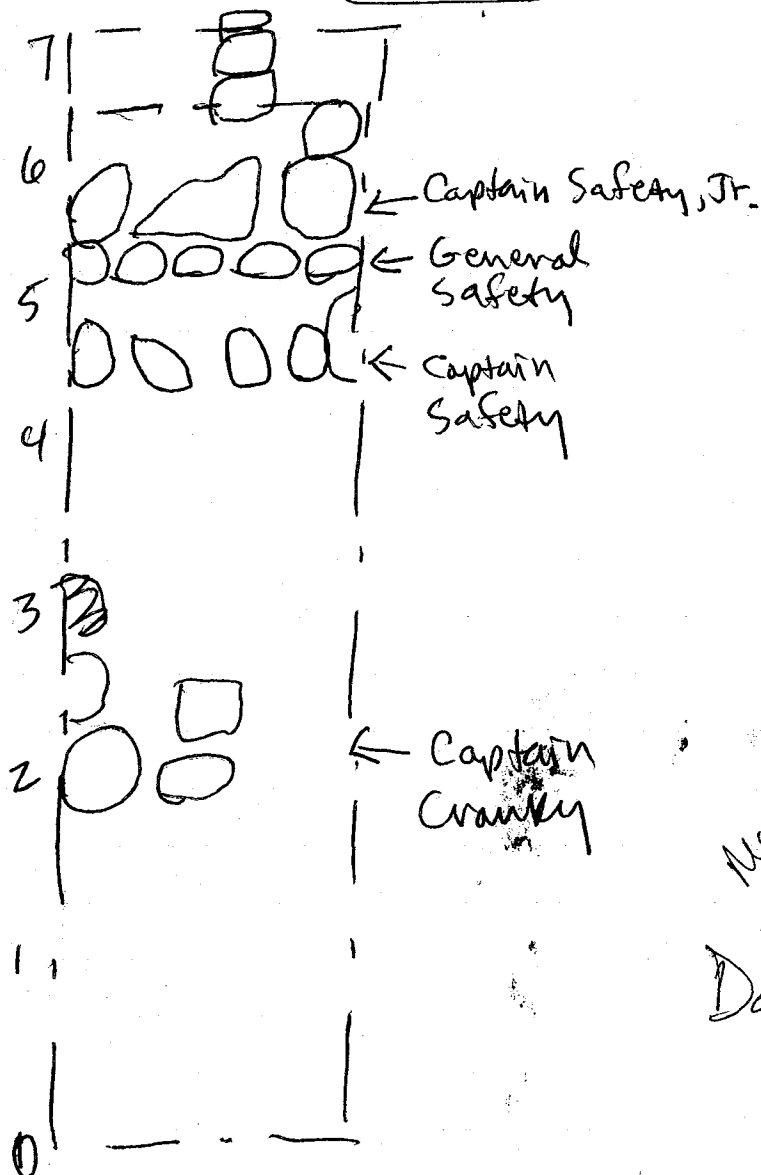 7
6
Captain Safety, Jr.
General
Safety
5
Captain
Safety
4
3
2
Captain
Cranky
1
0